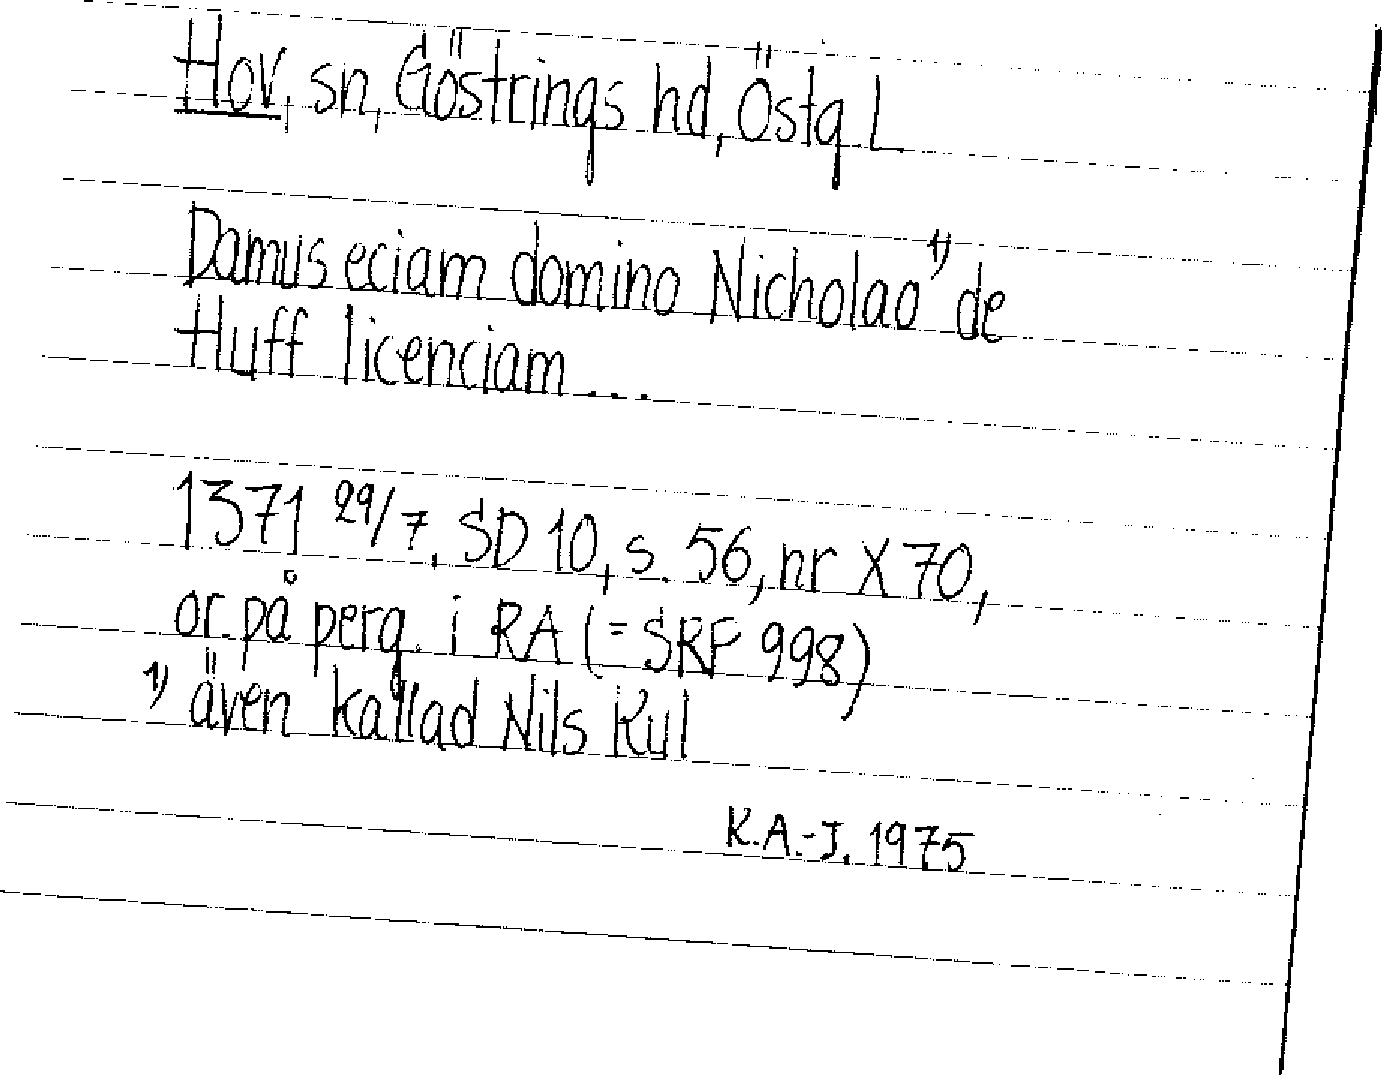 Hov, sn, Göstrings hd, Östg. L
Damus eciam domino Nicholao 1) de
Huff licenciam...
1371 29/7. SD 10, s. 56, nr X 70,
or. på perg. i RA (= SRF 998)
1) även kallad Nils Kul
K.A.-J. 1975